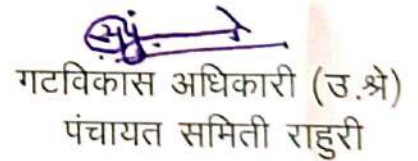 गटविकास अधिकारी (उ.श्रे)
पंचायत समिती राहुरी